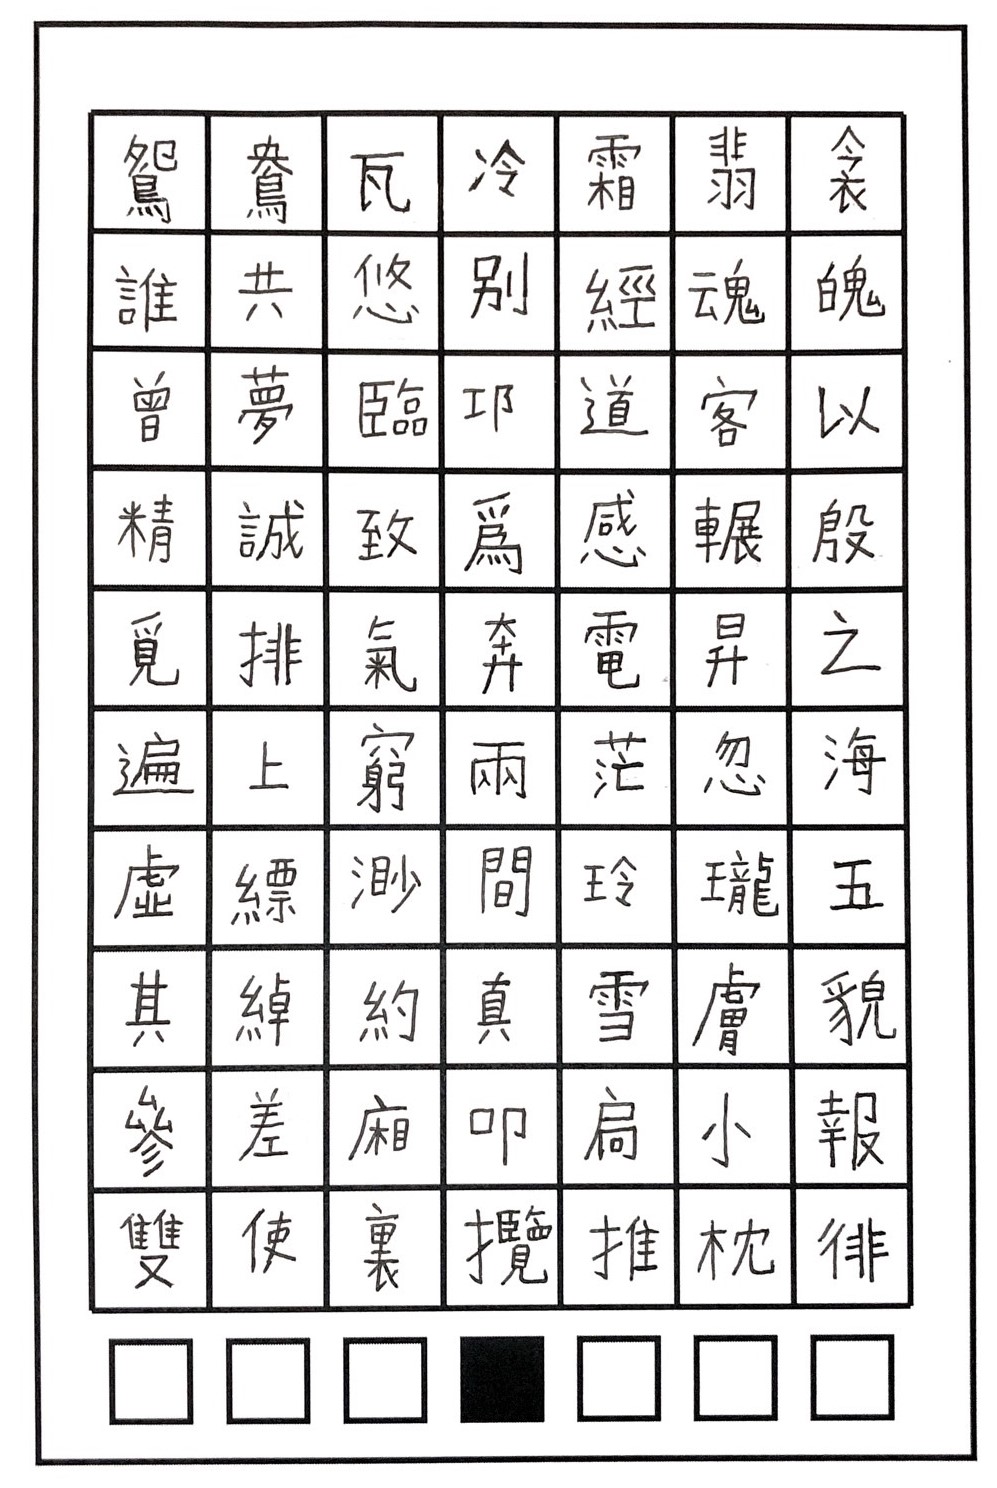 鴛鴦瓦冷霜翡衾
誰共悠別經魂魄
曾夢臨邛道客以
精誠致爲感輾殷
覓排氣奔電昇之
遍上窮兩茫忽海
虛縹渺間玲瓏五
其綽約真雪膚貌
參差廂叩扃小報
雙使裏攬推枕徘